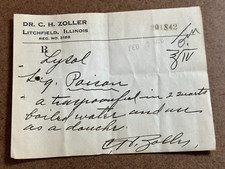 DR. C. H. ZOLLER
LITCHFIELD, ILLINOIS
REG. NO. 3199
261842
℞
Lysol
Poison
a teaspoonful in 2 quarts
boiled water and use
as a douche.
C H Zoller